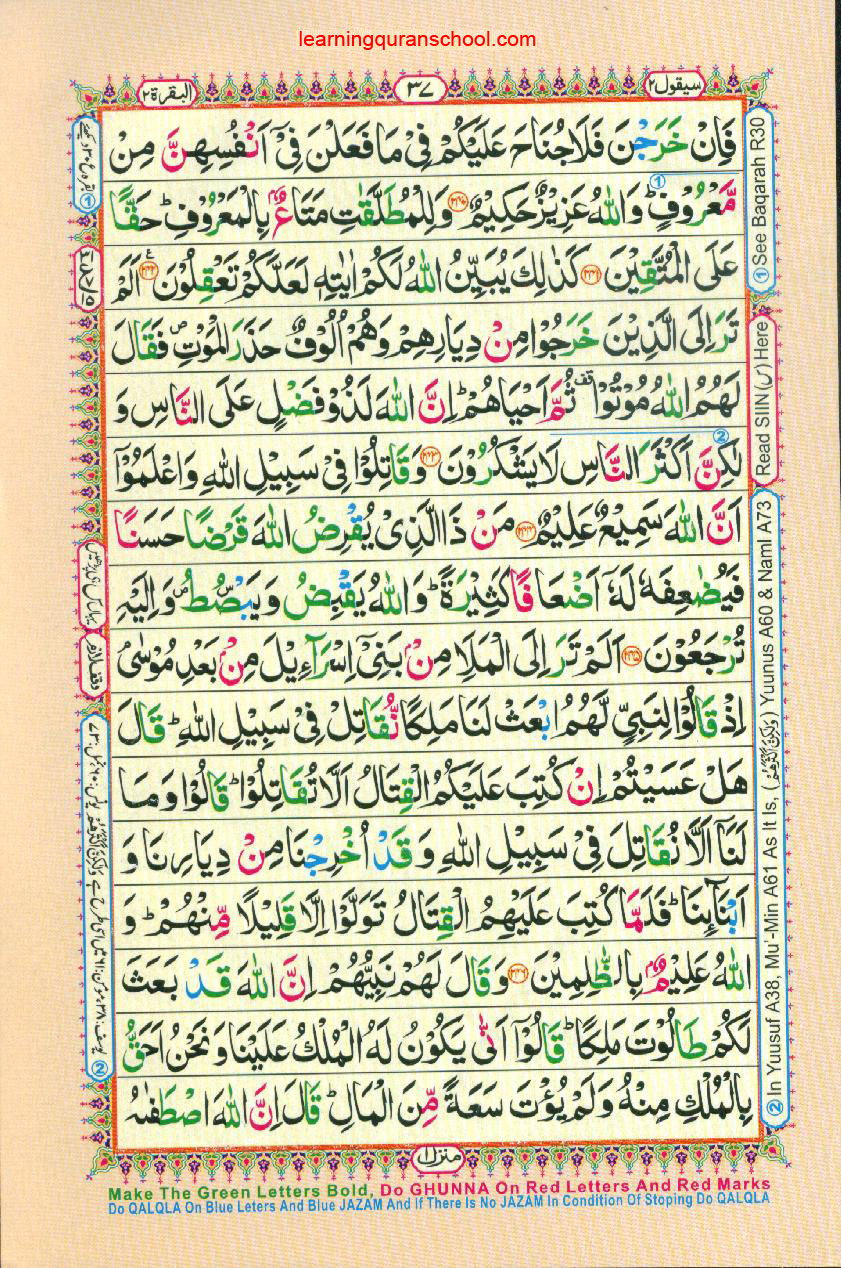 learningquranschool.com
سيقول ٢
٣٧
البقرة ٢
فَاِنْ خَرَجْنَ فَلَا جُنَاحَ عَلَيْكُمْ فِىْ مَا فَعَلْنَ فِىْٓ اَنْفُسِهِنَّ مِنْ
مَّعْرُوْفٍؕ وَاللّٰهُ عَزِيْزٌ حَكِيْمٌ ﴿۲۴۰﴾ وَلِلْمُطَلَّقٰتِ مَتَاعٌۢ بِالْمَعْرُوْفِؕ حَقًّا
عَلَى الْمُتَّقِيْنَ ﴿۲۴۱﴾ كَذٰلِكَ يُبَيِّنُ اللّٰهُ لَكُمْ اٰيٰتِهٖ لَعَلَّكُمْ تَعْقِلُوْنَ ﴿۲۴۲﴾ اَلَمْ
تَرَ اِلَى الَّذِيْنَ خَرَجُوْا مِنْ دِيَارِهِمْ وَهُمْ اُلُوْفٌ حَذَرَ الْمَوْتِ فَقَالَ
لَهُمُ اللّٰهُ مُوْتُوْا ثُمَّ اَحْيَاهُمْؕ اِنَّ اللّٰهَ لَذُوْ فَضْلٍ عَلَى النَّاسِ وَ
لٰكِنَّ اَكْثَرَ النَّاسِ لَا يَشْكُرُوْنَ ﴿۲۴۳﴾ وَقَاتِلُوْا فِىْ سَبِيْلِ اللّٰهِ وَاعْلَمُوْٓا
اَنَّ اللّٰهَ سَمِيْعٌ عَلِيْمٌ ﴿۲۴۴﴾ مَنْ ذَا الَّذِىْ يُقْرِضُ اللّٰهَ قَرْضًا حَسَنًا
فَيُضٰعِفَهٗ لَهٗٓ اَضْعَافًا كَثِيْرَةًؕ وَاللّٰهُ يَقْبِضُ وَيَبْصُۜطُ وَاِلَيْهِ
تُرْجَعُوْنَ ﴿۲۴۵﴾ اَلَمْ تَرَ اِلَى الْمَلَاِ مِنْۢ بَنِىْٓ اِسْرَآءِيْلَ مِنْۢ بَعْدِ مُوْسٰى
اِذْ قَالُوْا لِنَبِىٍّ لَّهُمُ ابْعَثْ لَنَا مَلِكًا نُّقَاتِلْ فِىْ سَبِيْلِ اللّٰهِؕ قَالَ
هَلْ عَسَيْتُمْ اِنْ كُتِبَ عَلَيْكُمُ الْقِتَالُ اَلَّا تُقَاتِلُوْاؕ قَالُوْا وَمَا
لَنَآ اَلَّا نُقَاتِلَ فِىْ سَبِيْلِ اللّٰهِ وَقَدْ اُخْرِجْنَا مِنْ دِيَارِنَا وَ
اَبْنَآئِنَاؕ فَلَمَّا كُتِبَ عَلَيْهِمُ الْقِتَالُ تَوَلَّوْا اِلَّا قَلِيْلًا مِّنْهُمْؕ وَ
اللّٰهُ عَلِيْمٌۢ بِالظّٰلِمِيْنَ ﴿۲۴۶﴾ وَقَالَ لَهُمْ نَبِيُّهُمْ اِنَّ اللّٰهَ قَدْ بَعَثَ
لَكُمْ طَالُوْتَ مَلِكًاؕ قَالُوْٓا اَنّٰى يَكُوْنُ لَهُ الْمُلْكُ عَلَيْنَا وَنَحْنُ اَحَقُّ
بِالْمُلْكِ مِنْهُ وَلَمْ يُؤْتَ سَعَةً مِّنَ الْمَالِؕ قَالَ اِنَّ اللّٰهَ اصْطَفٰىهُ
① See Baqarah R30
Read SIIN (س) Here
② In Yuusuf A38, Mu'-Min A61 As It Is, (وَلٰكِنَّ اَكْثَرَهُمْ) Yuunus A60 & Naml A73
منزل ١
Make The Green Letters Bold, Do GHUNNA On Red Letters And Red Marks
Do QALQLA On Blue Leters And Blue JAZAM And If There Is No JAZAM In Condition Of Stoping Do QALQLA